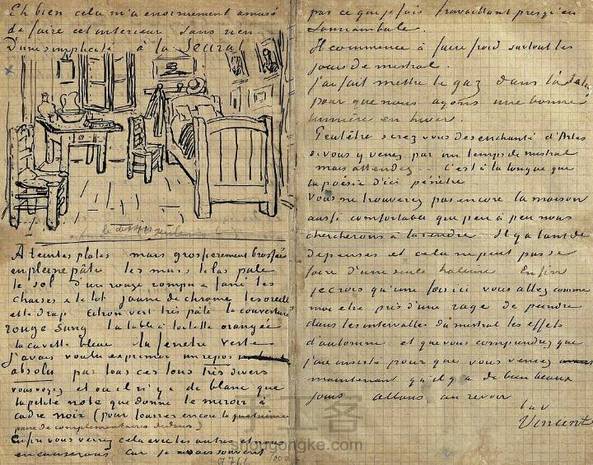 Eh bien cela m'a enormement amusé
de faire cet interieur Sans rien
D'une simplicité à la Seurat
A teintes plates mais grossierement brossées
en pleine pâte les murs lilas pale
le sol d'un rouge rompu & fané les
chaises & le lit jaune de chrome les oreillers
et le drap citron vert très pâle la couverture
rouge sang la table à toilette orangée
la cuvette bleue la fenetre verte
J'avais voulu exprimer un repos
absolu par tous ces tons très divers
vous voyez et où il n'y a de blanc que
la petite note que donne le miroir à
cadre noir (pour fourrer encore la quatrieme
paire de complementaires dedans)
Enfin vous verrez cela avec les autres et nous
en causerons car je ne sais souvent
pas ce que je fais travaillant presqu'en
somnambule.
Il commence à faire froid surtout les
jours de mistral.
J'ai fait mettre le gaz dans l'atelier
pour que nous ayons une bonne
lumière en hiver.
Peutêtre serez vous desenchanté d'Arles
si vous y venez par un temps de mistral
mais attendez .. C'est à la longue que
la poésie d'ici pénètre.
Vous ne trouverez pas encore la maison
aussi comfortable que peu à peu nous
chercherons à la rendre. Il y a tant de
depenses et cela ne peut pas se
faire d'une seule haleine. Enfin
je crois qu'une fois ici vous allez comme
moi etre pris d'une rage de peindre
dans les intervalles du mistral les effets
d'automne et que vous comprendrez que
j'ai insisté pour que vous veniez
maintenant qu'il y a de bien beaux
jours allons au revoir
t. à v.
Vincent
shougongke.com